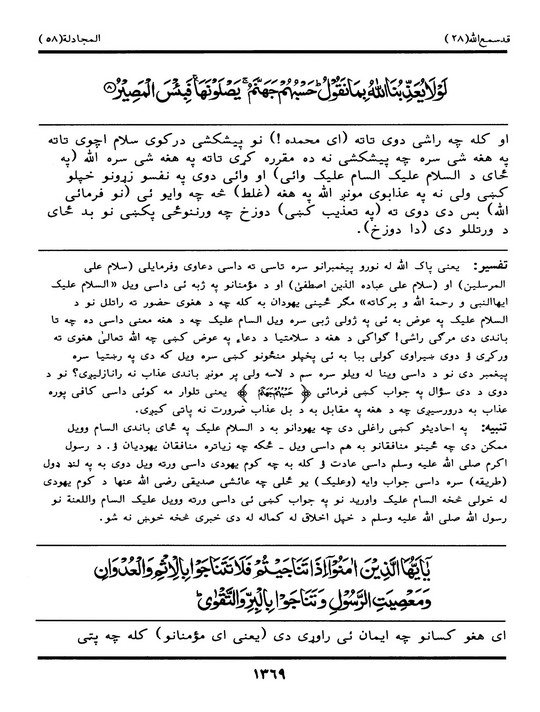 قدسمع الله (٢٨)
المجادلة (٥٨)
لَوْلَا يُعَذِّبُنَا اللّٰهُ بِمَا نَقُوْلُ ؕ حَسْبُهُمْ جَهَنَّمُ ۚ يَصْلَوْنَهَا ۚ فَبِئْسَ الْمَصِيْرُ ۸
او كله چه راشي دوى تاته (اى محمده !) نو پيشكشى دركوى سلام اچوى تاته
په هغه شى سره چه پيشكشى نه ده مقرره كړى تاته په هغه شى سره الله (په
ځاى د السلام عليک السام عليک وائي) او وائي دوى په نفسو زړونو خپلو
كښى ولى نه په عذابوى مونږ الله په هغه (غلط) څه چه وايو ئى (نو فرمائى
الله) بس دى دوى ته (په تعذيب كښى) دوزخ چه ورننوځى پكښى نو بد ځاى
د ورتللو دى (دا دوزخ).
تفسير: يعنى پاک الله له نورو پيغمبرانو سره تاسى ته داسى دعاوى وفرمايلى (سلام على
المرسلين) او (سلام على عباده الذين اصطفىٰ) او د مؤمنانو په ژبه ئى داسى ويل «السلام عليک
ايهاالنبى و رحمة الله و بركاته» مگر ځينى يهودان به كله چه د هغوى حضور ته راتلل نو د
السلام عليک په عوض به ئى په ژولى ژبى سره ويل السام عليک چه د هغه معنى داسى ده چه تا
باندى دى مرگى راشى! گواكى د هغه د سلامتيا د دعاء په عوض كښى چه الله تعالىٰ هغوى ته
وركړى ؤ دوى ښيراوى كولى بيا به ئى پخپلو منځونو كښى سره ويل كه دى په رښتيا سره
پيغمبر دى نو د داسى وينا له ويلو سره سم د لاسه ولى پر مونږ باندى عذاب نه رانازليږى؟ نو د
دوى د دى سؤال په جواب كښى فرمائى ﴿ حَسْبُهُمْ جَهَنَّمُ ﴾ يعنى تلوار مه كوئى داسى كافى پوره
عذاب به دررسيږى چه د هغه په مقابل به د بل عذاب ضرورت نه پاتى كيږى.
تنبيه: په احاديثو كښى راغلى دى چه يهودانو به د السلام عليک په ځاى باندى السام وويل
ممكن دى چه ځينو منافقانو به هم داسى ويل ـ ځكه چه زياتره منافقان يهوديان ؤ. د رسول
اكرم صلى الله عليه وسلم داسى عادت ؤ كله به چه كوم يهودى داسى ورته ويل دوى به په لنډ ډول
(طريقه) سره داسى جواب وايه (وعليک) يو ځلى چه عائشى صديقى رضى الله عنها د كوم يهودى
له خولى څخه السام عليک واوريد نو په جواب كښى ئى داسى ورته وويل عليک السام واللعنة نو
رسول الله صلى الله عليه وسلم د خپل اخلاق له كماله له دى خبرى څخه خوښ نه شو.
يٰۤاَيُّهَا الَّذِيْنَ اٰمَنُوْۤا اِذَا تَنَاجَيْتُمْ فَلَا تَتَنَاجَوْا بِالْاِثْمِ وَالْعُدْوَانِ
وَمَعْصِيَتِ الرَّسُوْلِ وَتَنَاجَوْا بِالْبِرِّ وَالتَّقْوٰى ؕ
اى هغو كسانو چه ايمان ئى راوړى دى (يعنى اى مؤمنانو) كله چه پتى
١٣٦٩